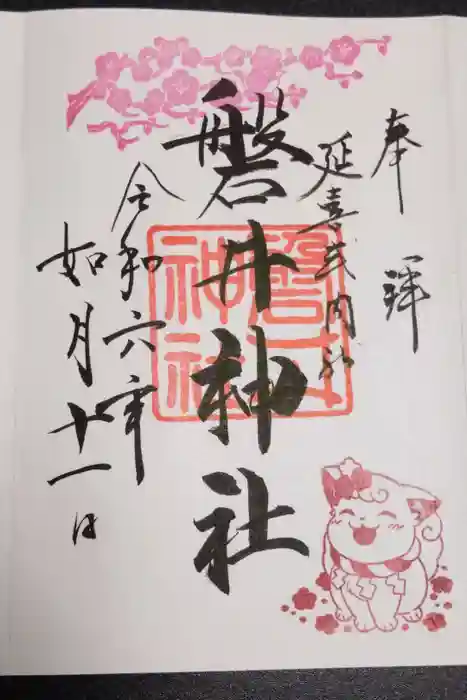 奉拝
延喜式内社
磐井神社
磐井神社
令和六年
如月十一日